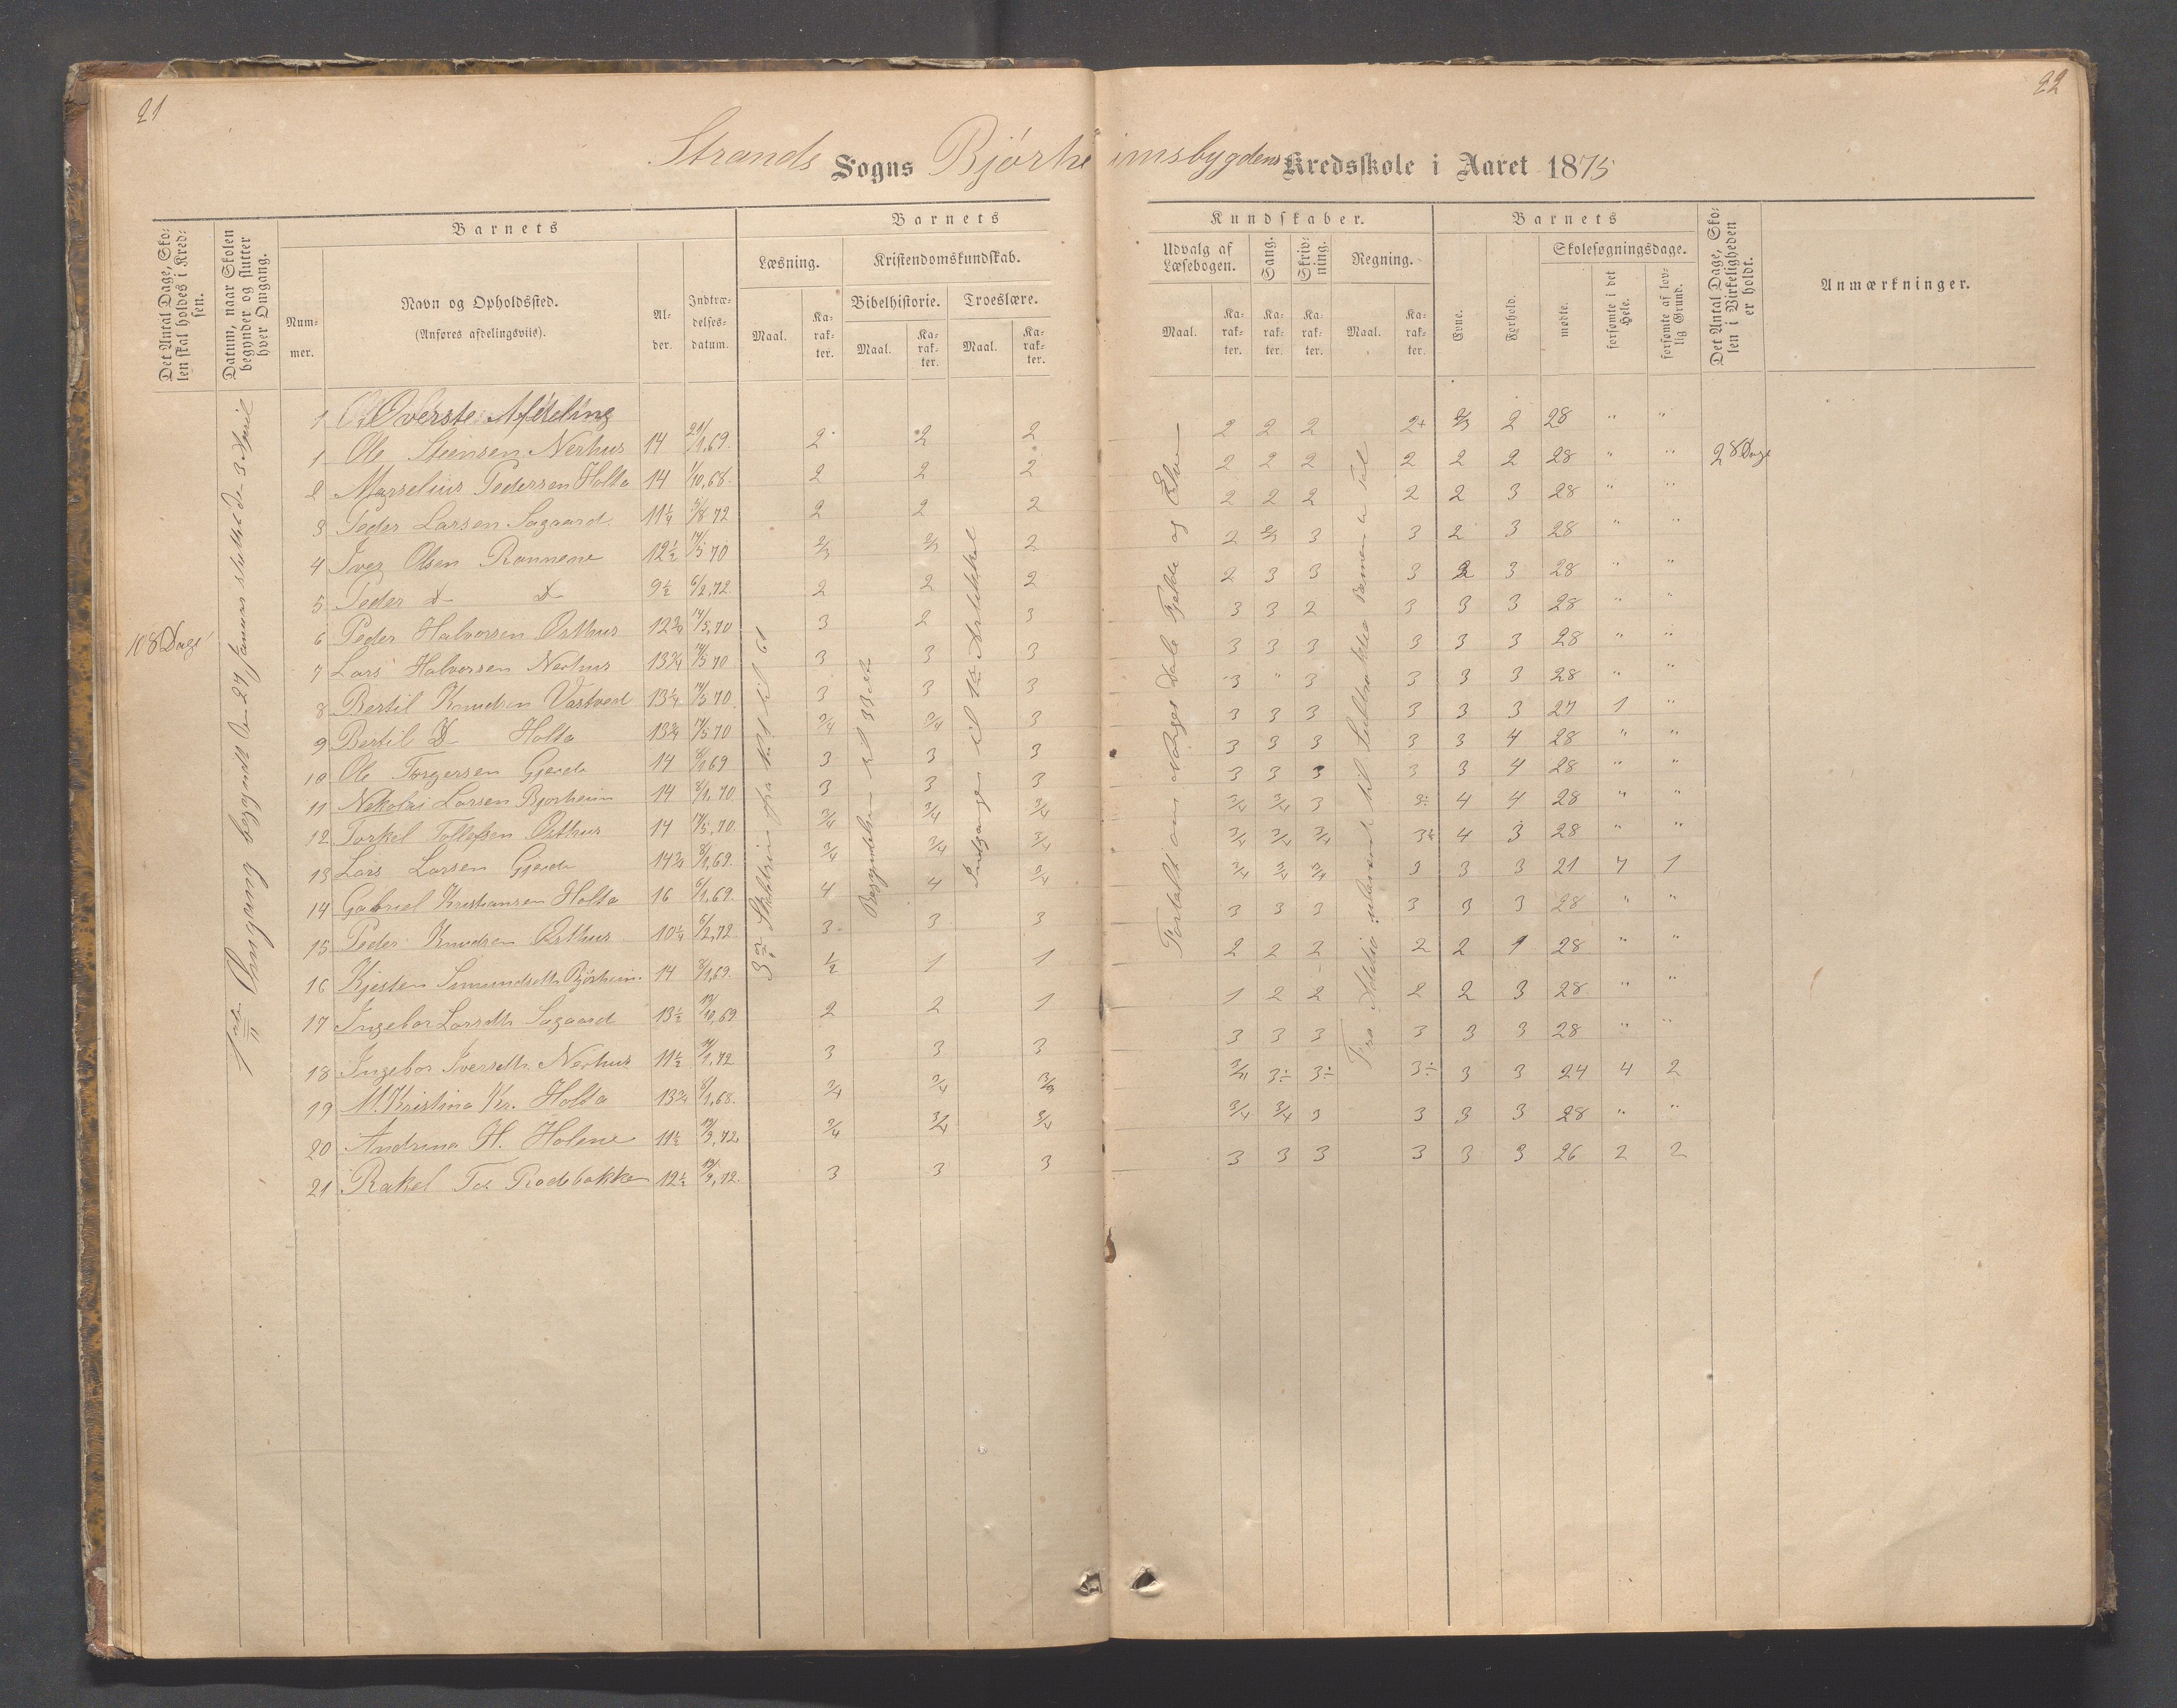 21
22
Strands Sogns Bjørheimsbygdens Kredsskole i Aaret 1875
Det Antal Dage, Skolen skal holdes i Kredsen.
Datum, naar Skolen begynder og slutter hver Omgang.
Barnets
Nummer.
Navn og Opholdssted.
(Anføres afdelingsviis).
Alder.
Indtrædelsesdatum.
Barnets
Læsning.
Kristendomskundskab.
Bibelhistorie.
Troeslære.
Maal.
Karakter.
Maal.
Karakter.
Maal.
Karakter.
Kundskaber.
Udvalg af Læsebogen.
Sang.
Skrivning.
Regning.
Maal.
Karakter.
Karakter.
Karakter.
Maal.
Karakter.
Barnets
Evne.
Forhold.
Skolesøgningsdage.
mødte.
forsømte i det Hele.
forsømte af lovlig Grund.
Det Antal Dage, Skolen i Virkeligheden er holdt.
Anmærkninger.
108 Dage
1ste Omgang begyndt den 27 Januar sluttet den 3 April
Øverste Afdeling
1 Ole Steensen Nerhus 14 21/1,69. 2 2 2 2 2 2 2+ 2/3 2 28 " "
2 Marselius Pedersen Holta 14 1/10,68. 2 2 2 2 2 2 2 2 2 28 " " 28 Dage
3 Peder Larsen Sagaard 11 1/4 5/8 72 2 2 2 2 2 2 2 2 3 28 " "
4 Iver Olsen Rannene 12 1/2 14/5 70 2/3 2/3 2 2 2/3 3 3 2 3 28 " "
5 Peder D D 9 1/2 6/2,72. 2 2 2 2 3 3 3 2 3 28 " "
6 Peder Halvorsen Østhus 12 3/4 14/5,70 3 2 3 3 3 2 3 3 3 28 " "
7 Lars Halvorsen Nerhus 13 3/4 14/5 70 3 3 3 3 3 3 3 3 3 28 " "
8 Bertil Knudsen Vastveit 13 1/4 14/5 70. 3 3 3 3 " 3 3 3 3 28 " "
9 Bertil D Holta 13 3/4 14/5 70 3/4 3/4 3 3 3 3 3 3 3 27 1 "
10 Ole Torgersen Gjerde 14 8/1 69 3 3 3 3 3 3 3 3 4 28 " "
11 Nekolai Larsen Bjørheim 14 8/1,70 3 3 3 3 3 3 3 3 4 28 " "
12 Torkel Tollefsen Østhus 14 14/5,70. 3/4 3/4 3/4 3/4 3/4 3 3÷ 4 4 28 " "
13 Lars Larsen Gjerde 14 3/4 8/1,69. 3/4 3/4 3/4 3/4 3/4 3/4 4 3 28 " "
14 Gabriel Kristiansen Holta 16 6/1,69. 4 4 3/4 3/4 3/4 3/4 3 3 3 21 7 1
15 Peder Knudsen Østhus 10 1/4 6/2,72 3 3 3 3 3 3 3 3 3 28 " "
16 Kjesten Simundsdtr Bjørheim. 14 8/1,69. 1/2 1 1 2 2 2 2 2 1 28 " "
17 Ingebor Larsdtr Sagaard 13 1/2 12/10,69 2 2 1 1 2 2 2 2 3 28 " "
18 Ingebor Iversdtr. Nerhus 11 1/2 14/1,72 3 3 3 3 3 3 3 3 3 28 " "
19 M. Kristina Kr. Holta 13 3/4 8/1,68. 3/4 3/4 3/4 3÷ 3÷ 3÷ 3 3 24 4 2
20 Andrina H. Holene 11 1/2 12/3,72. 3/4 3/4 3/4 3/4 3/4 3 3 3 3 28 " "
21 Rakel Rødebakke 12 1/2 12/3,72. 3 3 3 3 3 3 3 3 3 26 2 2
fra til 61
Begyndelsen til 33
Indgangen til Artikkel
Fortalt om Norges Dale Fjelde og Elve
Fra til Subtraktio